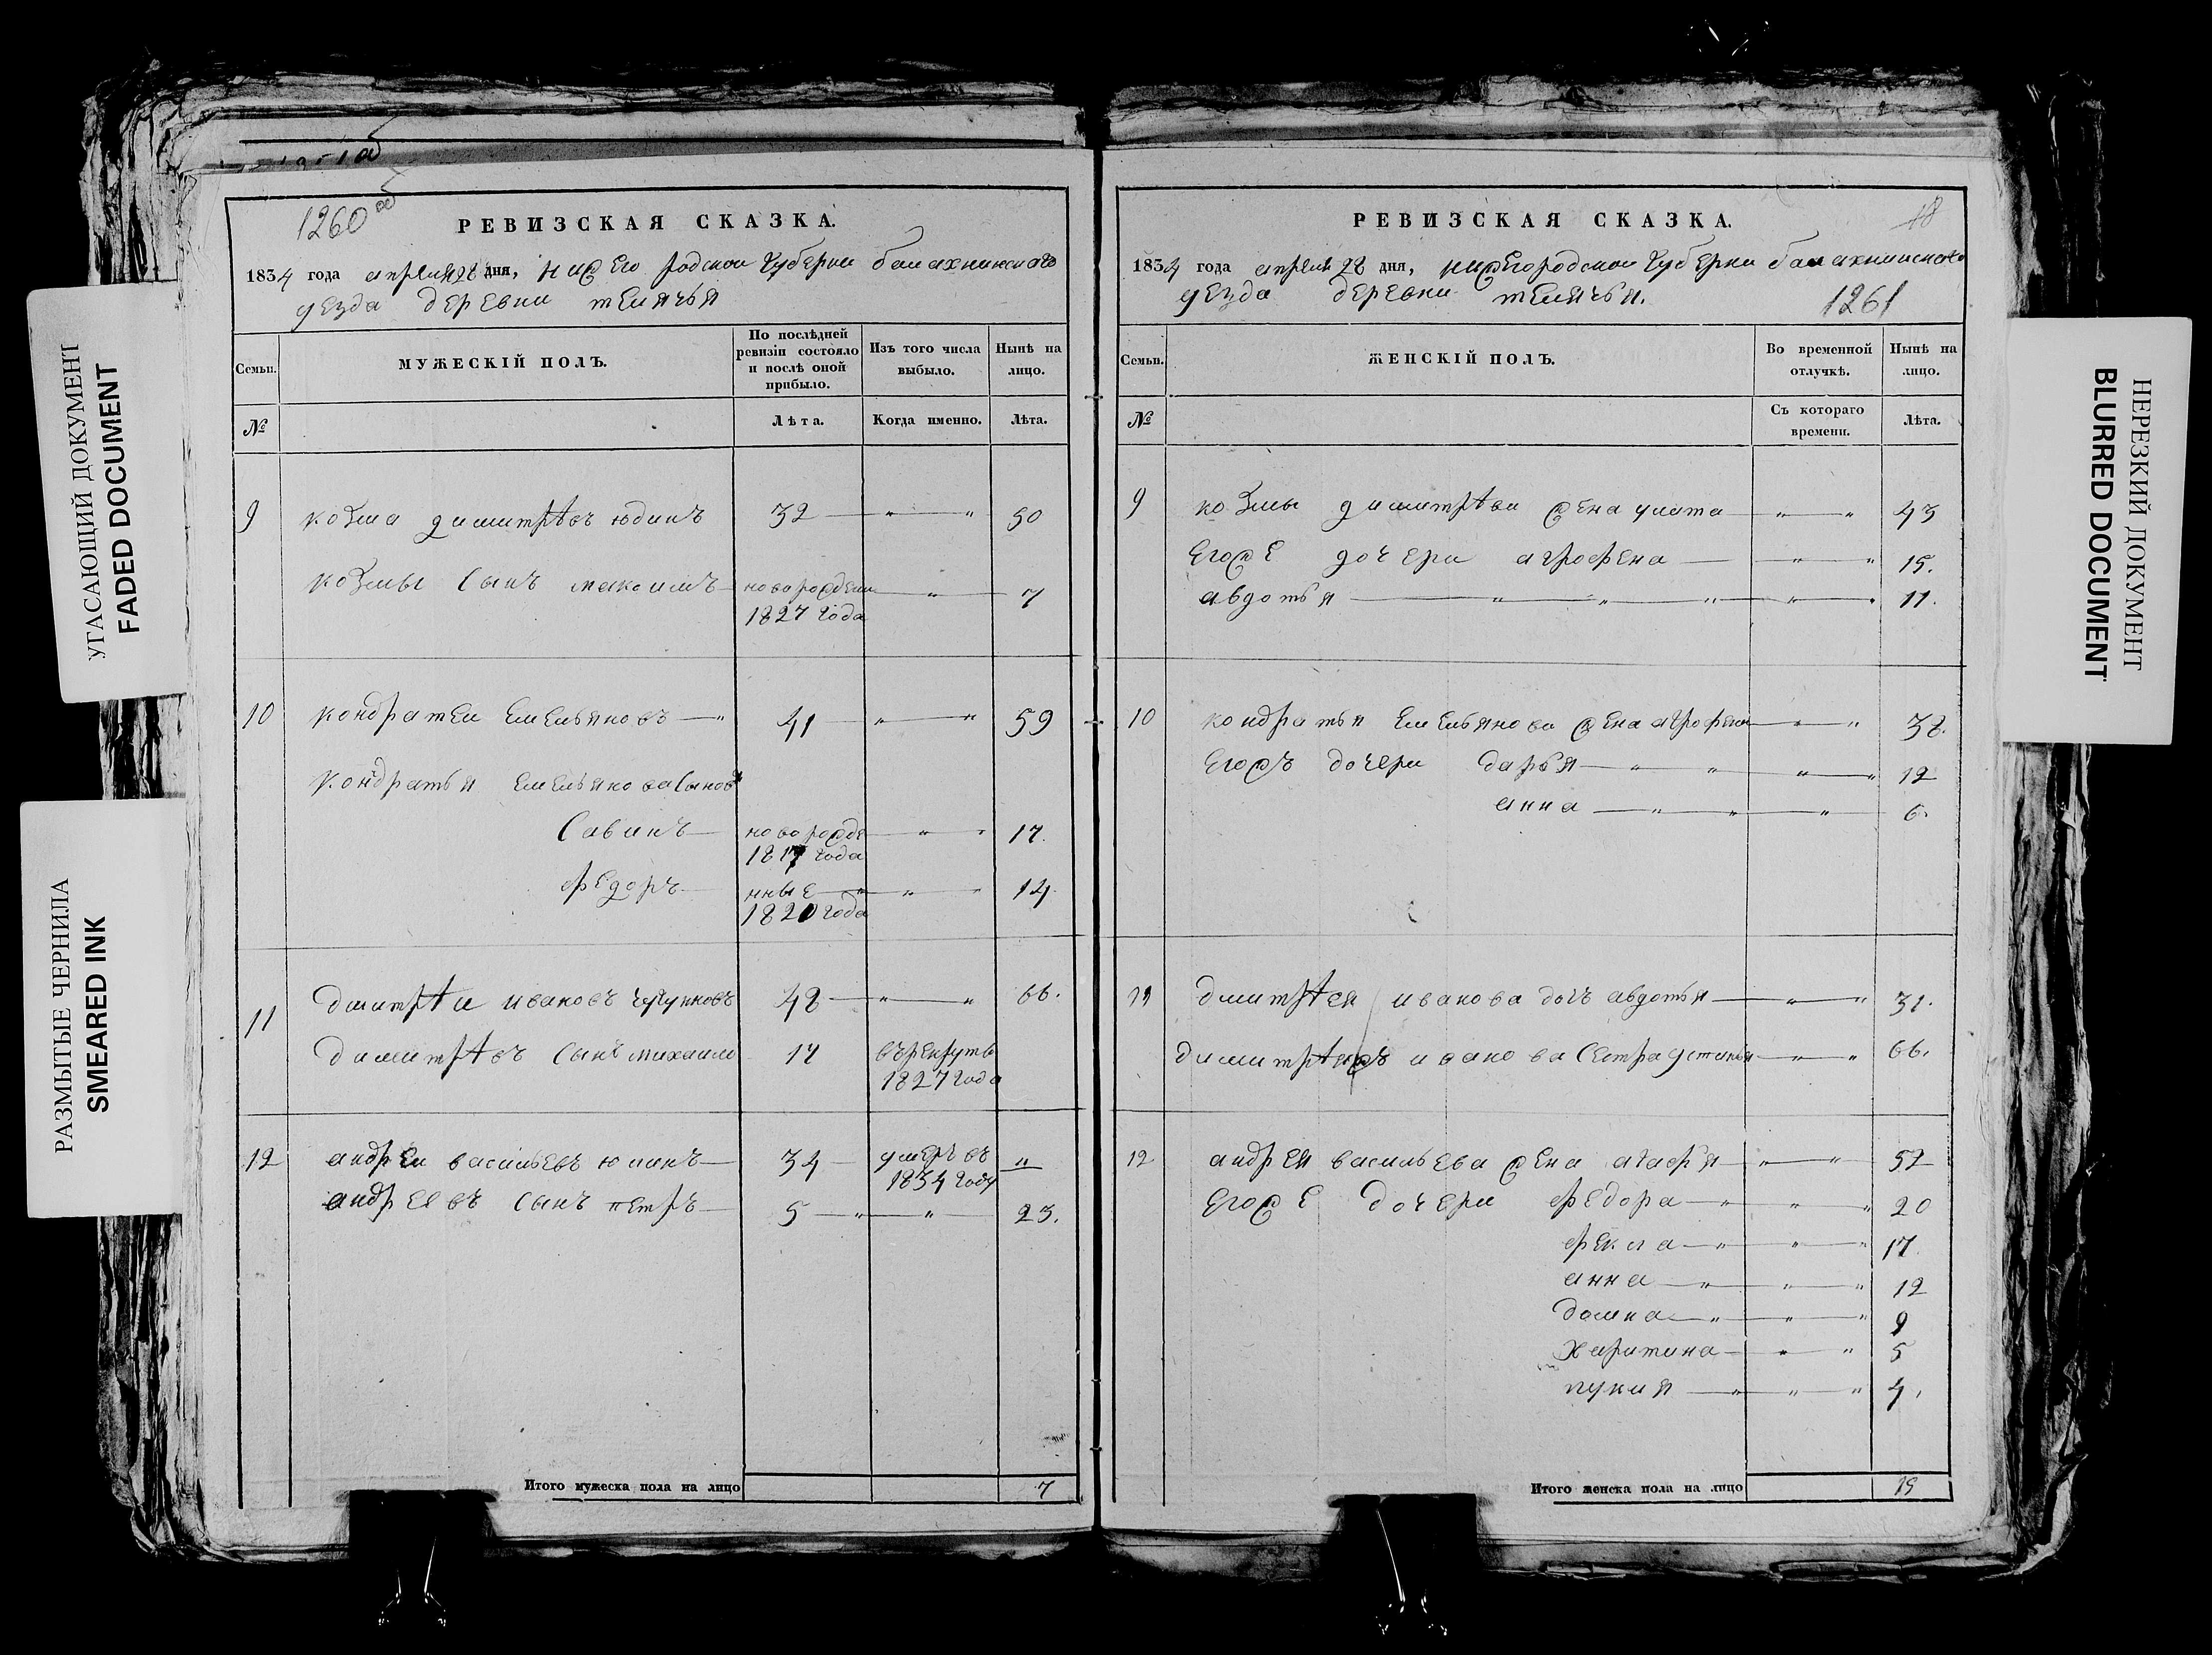 УГАСАЮЩИЙ ДОКУМЕНТ
FADED DOCUMENT
РАЗМЫТЫЕ ЧЕРНИЛА
SMEARED INK
1260 об
РЕВИЗСКАЯ СКАЗКА.
1834 года апреля 28 дня, нижегородской губерни балахнинскаго
уезда деревни телячья
Семьи. МУЖЕСКІЙ ПОЛЪ. По послѣдней ревизіи состояло и послѣ оной прибыло. Изъ того числа выбыло. Нынѣ на лицо.
№ Лѣта. Когда именно. Лѣта.
9 козма димитріевъ юдинъ 32 — " — " 50
козмы сынъ максимъ новорожден " 7
1827 года
10 кондратеи емельяновъ — " 41 " — " 59
кондратья емельянова сыновья
Савинъ — новорожде " " 17.
1817 года
федоръ — нные — " " 14.
1820 года
11 дмитріи ивановъ 48 — " — " 66.
димитріевъ сынъ михаило 17 въ рекруты
1827 года
12 андреи васильевъ 34 умеръ въ "
1834 году
андреевъ сынъ петръ — 5 — " — " 23.
Итого мужеска пола на лицо 7
18
РЕВИЗСКАЯ СКАЗКА.
1834 года апреля 28 дня, нижегородской губерни балахнинскаго
уезда деревни телячья. 1261
Семьи. ЖЕНСКІЙ ПОЛЪ. Во временной отлучкѣ. Нынѣ на лицо.
№ Съ котораго времени. Лѣта.
9 козмы димитріева жена улита — " — " 43
егоже дочери агрофена — " — " 15.
авдотья — " — " — " — " — " 11.
10 кондратья емельянова жена агрофена — " — " 38.
егожъ дочери дарья — " — " — " — " 12
анна — " — " — " 6.
11 дмитрея иванова дочь авдотья — " — " 31.
иванова сестра устинья — " — " 66.
12 андрея васильева жена агафья — " — " 52
егоже дочери федора — " — " — " 20
фекла — " — " — " 17.
анна — " — " — " 12
домна — " — " — " 9
харитина — " — " 5
лукия — " — " — " 4.
Итого женска пола на лицо 15
НЕРЕЗКИЙ ДОКУМЕНТ
BLURRED DOCUMENT